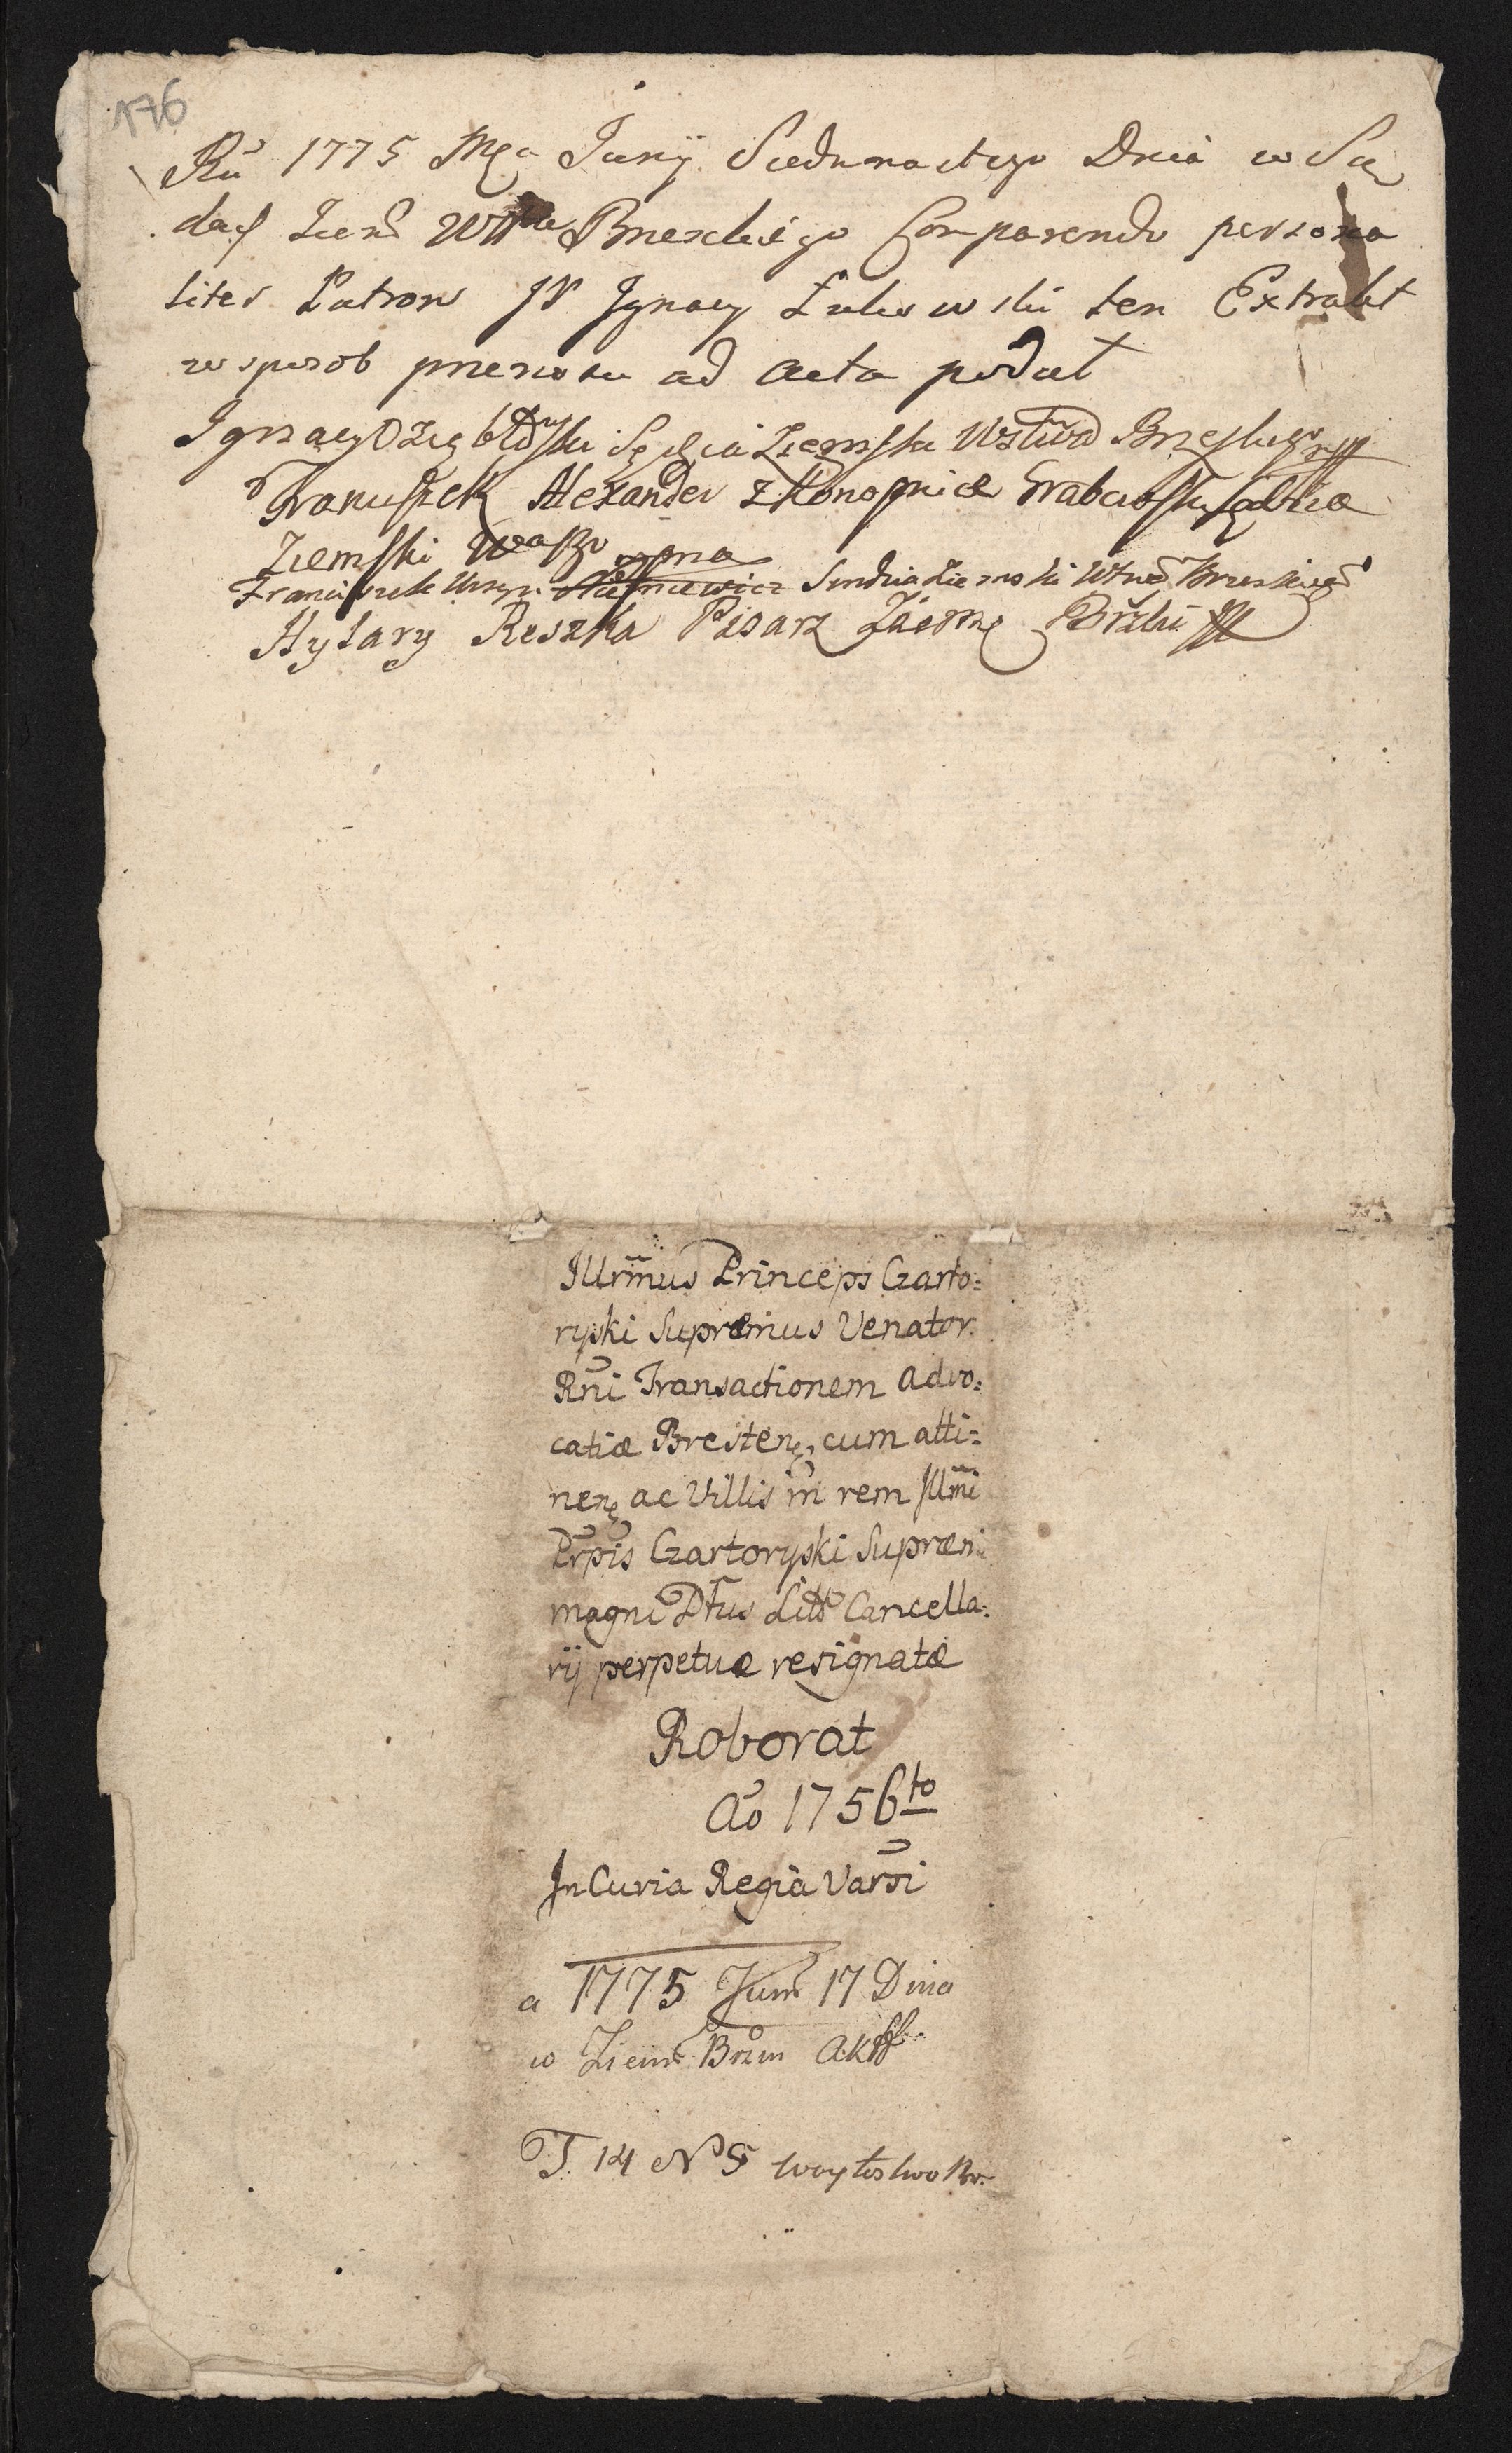 176
Ru 1775 Mca Junij Siedmnastego Dnia w Są
dach Ziem Wttwa Brzeskiego Comparendo persona
liter Patron JP Ignacy Żukowski ten Extrakt
w sposob przenosu ad Acta podał
Ignacy Sędzia Ziemski Wztwa Brzeskiego
Franciszek Alexander z Konopnice Grabowski Sędzia
Ziemski
Franciszek Ursyn Niemcewicz Sendzia Ziemski Wtwa Brzeskiego
Hylary Reszka Pisarz Ziems Brzski
Illrmus Princeps Czarto=
ryski Supræmus Venator
Rni Transactionem advo=
catiæ Bresten, cum atti=
nen ac Villis in rem Illmi
Prpis Czartoryski Supræmi
magni Dtus Litt Cancella=
rij perpetuæ resignatæ
Roborat
Ao 1756to
In Curia Regia Varsi
a 1775 Juni 17 Dnia
w Ziem Brzm Akt
T. 14 N 5 Woytostwo Br.